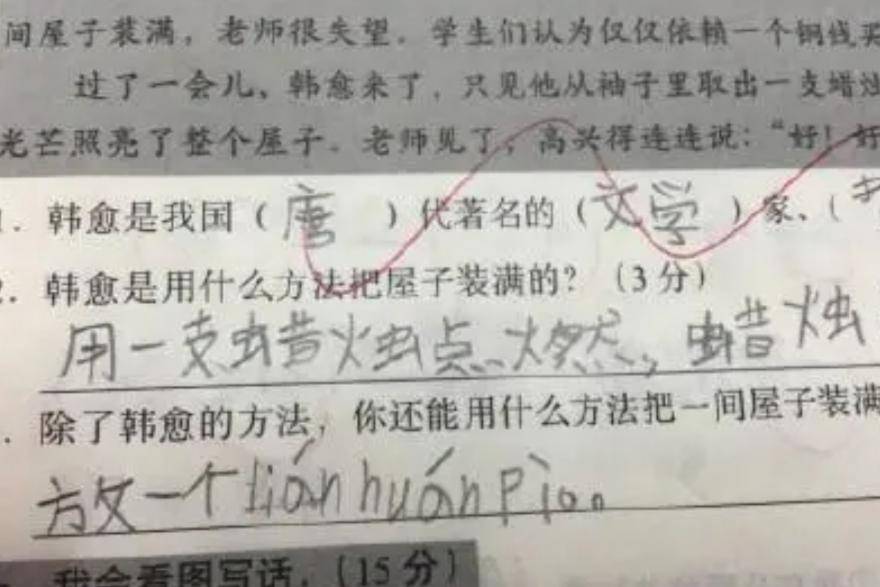 间屋子装满，老师很失望。学生们认为仅仅依赖一个铜钱买
过了一会儿、韩愈来了，只见他从袖子里取出一支蜡烛
光芒照亮了整个屋子。老师见了，高兴得连连说：“好！好
1．韩愈是我国（唐）代著名的（文学）家、（
2．韩愈是用什么方法把屋子装满的？（3分）
用一支蜡烛点燃，蜡烛
．除了韩愈的方法，你还能用什么方法把一间屋子装满
放一个lián huán pì。
我会看图写话，（15分）